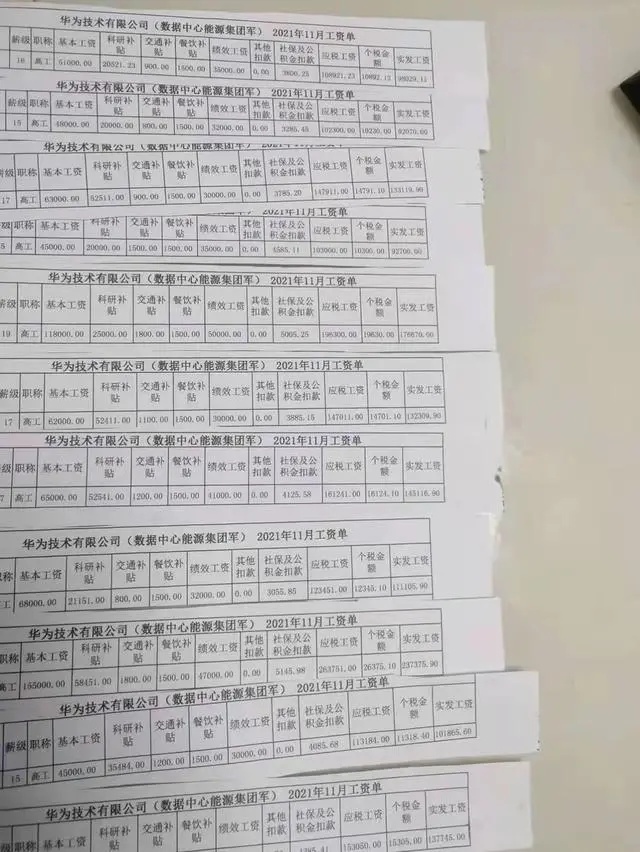 华为技术有限公司（数据中心能源集团军） 2021年11月工资单
薪级 职称 基本工资 科研补贴 交通补贴 餐饮补贴 绩效工资 其他扣款 社保及公积金扣款 应税工资 个税金额 实发工资
16 高工 51000.00 20521.23 900.00 1500.00 35000.00 0.00 3800.25 108921.23 10892.12 98029.11
华为技术有限公司（数据中心能源集团军） 2021年11月工资单
薪级 职称 基本工资 科研补贴 交通补贴 餐饮补贴 绩效工资 其他扣款 社保及公积金扣款 应税工资 个税金额 实发工资
15 高工 48000.00 20000.00 800.00 1500.00 32000.00 0.00 3285.45 102300.00 10230.00 92070.00
华为技术有限公司（数据中心能源集团军） 2021年11月工资单
薪级 职称 基本工资 科研补贴 交通补贴 餐饮补贴 绩效工资 其他扣款 社保及公积金扣款 应税工资 个税金额 实发工资
17 高工 63000.00 52511.00 900.00 1500.00 30000.00 0.00 3785.20 147911.00 14791.10 133119.90
2021年11月工资单
薪级 职称 基本工资 科研补贴 交通补贴 餐饮补贴 绩效工资 其他扣款 社保及公积金扣款 应税工资 个税金额 实发工资
5 高工 45000.00 20000.00 1500.00 1500.00 35000.00 0.00 4585.11 103000.00 10300.00 92700.00
华为技术有限公司（数据中心能源集团军） 2021年11月工资单
薪级 职称 基本工资 科研补贴 交通补贴 餐饮补贴 绩效工资 其他扣款 社保及公积金扣款 应税工资 个税金额 实发工资
19 高工 118000.00 25000.00 1800.00 1500.00 50000.00 0.00 5005.25 196300.00 19630.00 176670.00
华为技术有限公司（数据中心能源集团军） 2021年11月工资单
薪级 职称 基本工资 科研补贴 交通补贴 餐饮补贴 绩效工资 其他扣款 社保及公积金扣款 应税工资 个税金额 实发工资
17 高工 62000.00 52411.00 1100.00 1500.00 30000.00 0.00 3885.15 147011.00 14701.10 132309.90
华为技术有限公司（数据中心能源集团军） 2021年11月工资单
薪级 职称 基本工资 科研补贴 交通补贴 餐饮补贴 绩效工资 其他扣款 社保及公积金扣款 应税工资 个税金额 实发工资
7 高工 65000.00 52541.00 1200.00 1500.00 41000.00 0.00 4125.58 161241.00 16124.10 145116.90
华为技术有限公司（数据中心能源集团军） 2021年11月工资单
职称 基本工资 科研补贴 交通补贴 餐饮补贴 绩效工资 其他扣款 社保及公积金扣款 应税工资 个税金额 实发工资
高工 68000.00 21151.00 800.00 1500.00 32000.00 0.00 3055.85 123451.00 12345.10 111105.90
华为技术有限公司（数据中心能源集团军） 2021年11月工资单
职称 基本工资 科研补贴 交通补贴 餐饮补贴 绩效工资 其他扣款 社保及公积金扣款 应税工资 个税金额 实发工资
高工 155000.00 58451.00 1800.00 1500.00 47000.00 0.00 5145.98 263751.00 26375.10 237375.90
华为技术有限公司（数据中心能源集团军） 2021年11月工资单
薪级 职称 基本工资 科研补贴 交通补贴 餐饮补贴 绩效工资 其他扣款 社保及公积金扣款 应税工资 个税金额 实发工资
15 高工 45000.00 35484.00 1200.00 1500.00 30000.00 0.00 4085.68 113184.00 11318.40 101865.60
华为技术有限公司（数据中心能源集团军） 2021年11月工资单
职称 基本工资 科研补贴 交通补贴 餐饮补贴 绩效工资 其他扣款 社保及公积金扣款 应税工资 个税金额 实发工资
153050.00 15305.00 137745.00